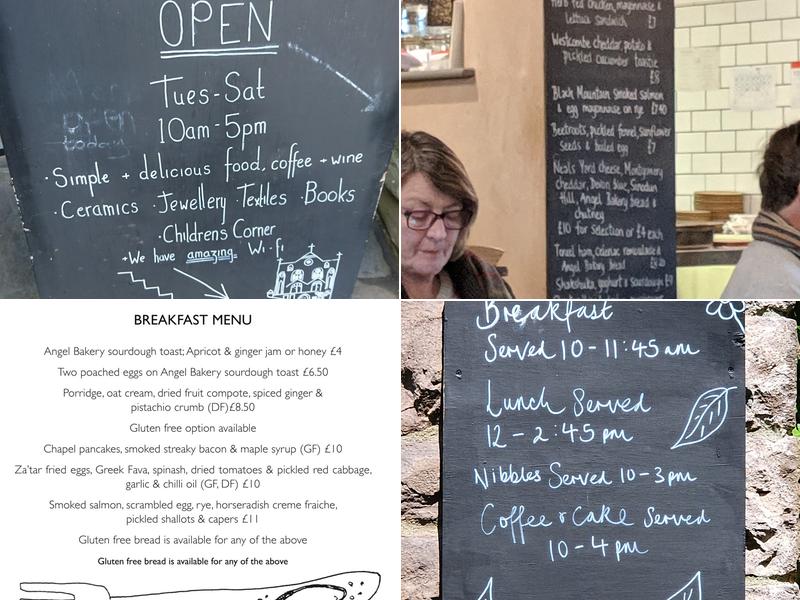 OPEN
Tues-Sat
10am-5pm
·Simple + delicious food, coffee + wine
·Ceramics ·Jewellery ·Textiles ·Books
·Children's Corner
+We have amazing Wi-fi
Herb fed chicken, mayonnaise &
lettuce sandwich £7
Westcombe cheddar, potato &
pickled cucumber toastie
£8
Black Mountain smoked salmon
& egg mayonnaise on rye £7.40
Beetroots, pickled fennel, sunflower
seeds & boiled egg £7
Neals Yard cheese, Montgomery
cheddar, Devon blue, Sinodun
Hill, Angel Bakery bread &
chutney
£10 for selection or £4 each
ham, celeriac remoulade &
Angel Bakery bread
Shakshuka, yoghurt & sourdough £9
BREAKFAST MENU
Angel Bakery sourdough toast; Apricot & ginger jam or honey £4
Two poached eggs on Angel Bakery sourdough toast £6.50
Porridge, oat cream, dried fruit compote, spiced ginger &
pistachio crumb (DF)£8.50
Gluten free option available
Chapel pancakes, smoked streaky bacon & maple syrup (GF) £10
Za'tar fried eggs, Greek Fava, spinash, dried tomatoes & pickled red cabbage,
garlic & chilli oil (GF, DF) £10
Smoked salmon, scrambled egg, rye, horseradish creme fraiche,
pickled shallots & capers £11
Gluten free bread is available for any of the above
Gluten free bread is available for any of the above
Breakfast
Served 10-11:45am
Lunch Served
12-2:45pm
Nibbles Served 10-3pm
Coffee & Cake Served
10-4pm